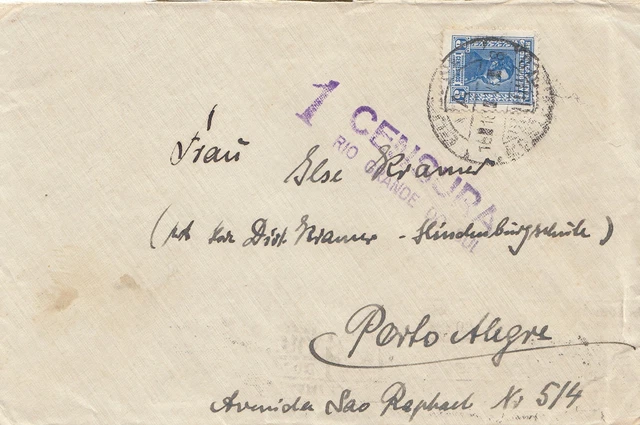 1 CENSURA
RIO GRANDE DO SUL
Frau
Ilse Kramer
( Kramer - Hindenburgschule )
Porto Alegre
Avenida Sao Raphael Nr 514